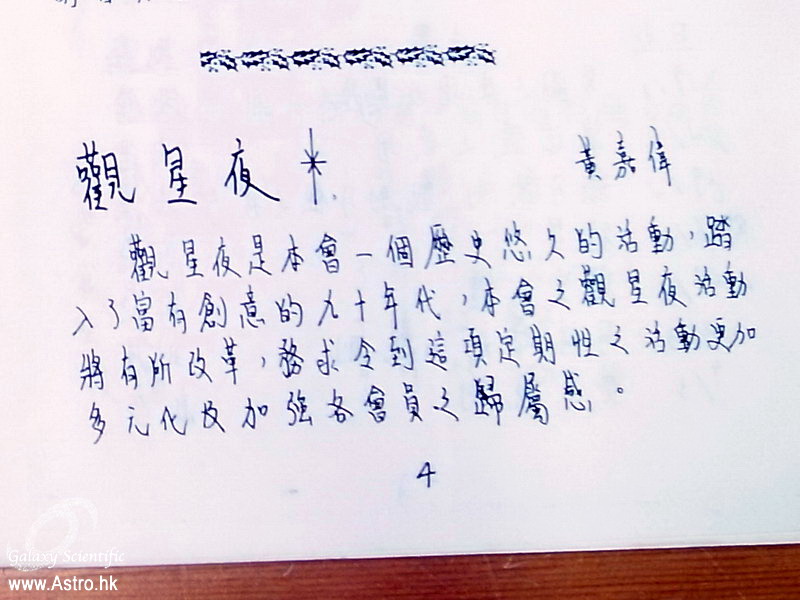 觀星夜 黃嘉偉
觀星夜是本會一個歷史悠久的活動，踏
入了富有創意的九十年代，本會之觀星夜活動
將有所改革，務求令到這項定期性之活動更加
多元化及加強各會員之歸屬感。
4
Galaxy Scientific
www.Astro.hk